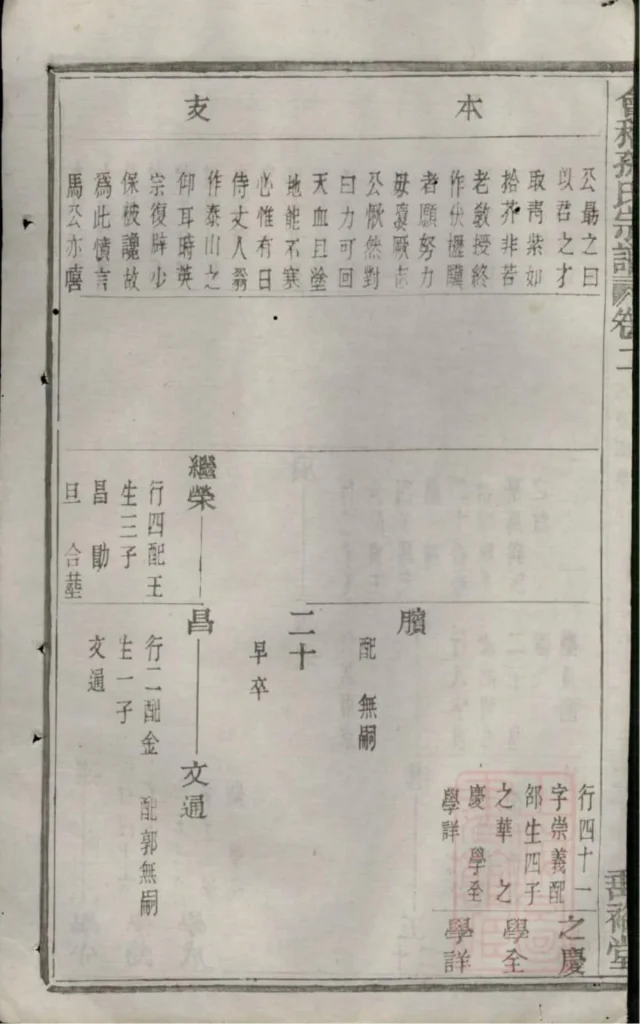 會稽孫氏宗譜 卷二
本
支
公勗之曰
以君之才
取靑紫如
拾芥非若
老敎授終
作伏櫪驥
者願努力
毋褱厥志
公慨然對
曰力可回
天血且塗
地能不寒
心惟有日
侍丈人翁
作泰山之
仰耳時英
宗復辟少
保被讒故
爲此憤言
馬公亦嘻
行四十一
字崇義配
邵生四子
之華 之
慶 學全
學詳
之慶
學全
學詳
臏
配 無嗣
二十
早卒
繼榮
行四配王
生三子
昌 勛
旦 合塟
昌
行二配金
生一子
文通
文通
配郭無嗣